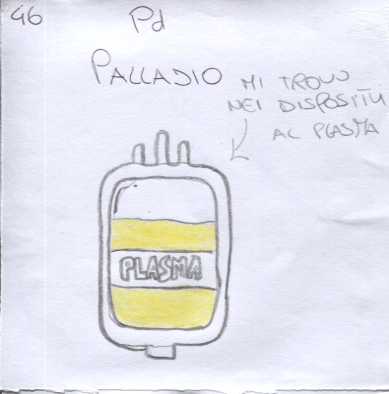 46
Pd
PALLADIO
MI TROVO
NEI DISPOSITIVI
AL PLASMA
PLASMA